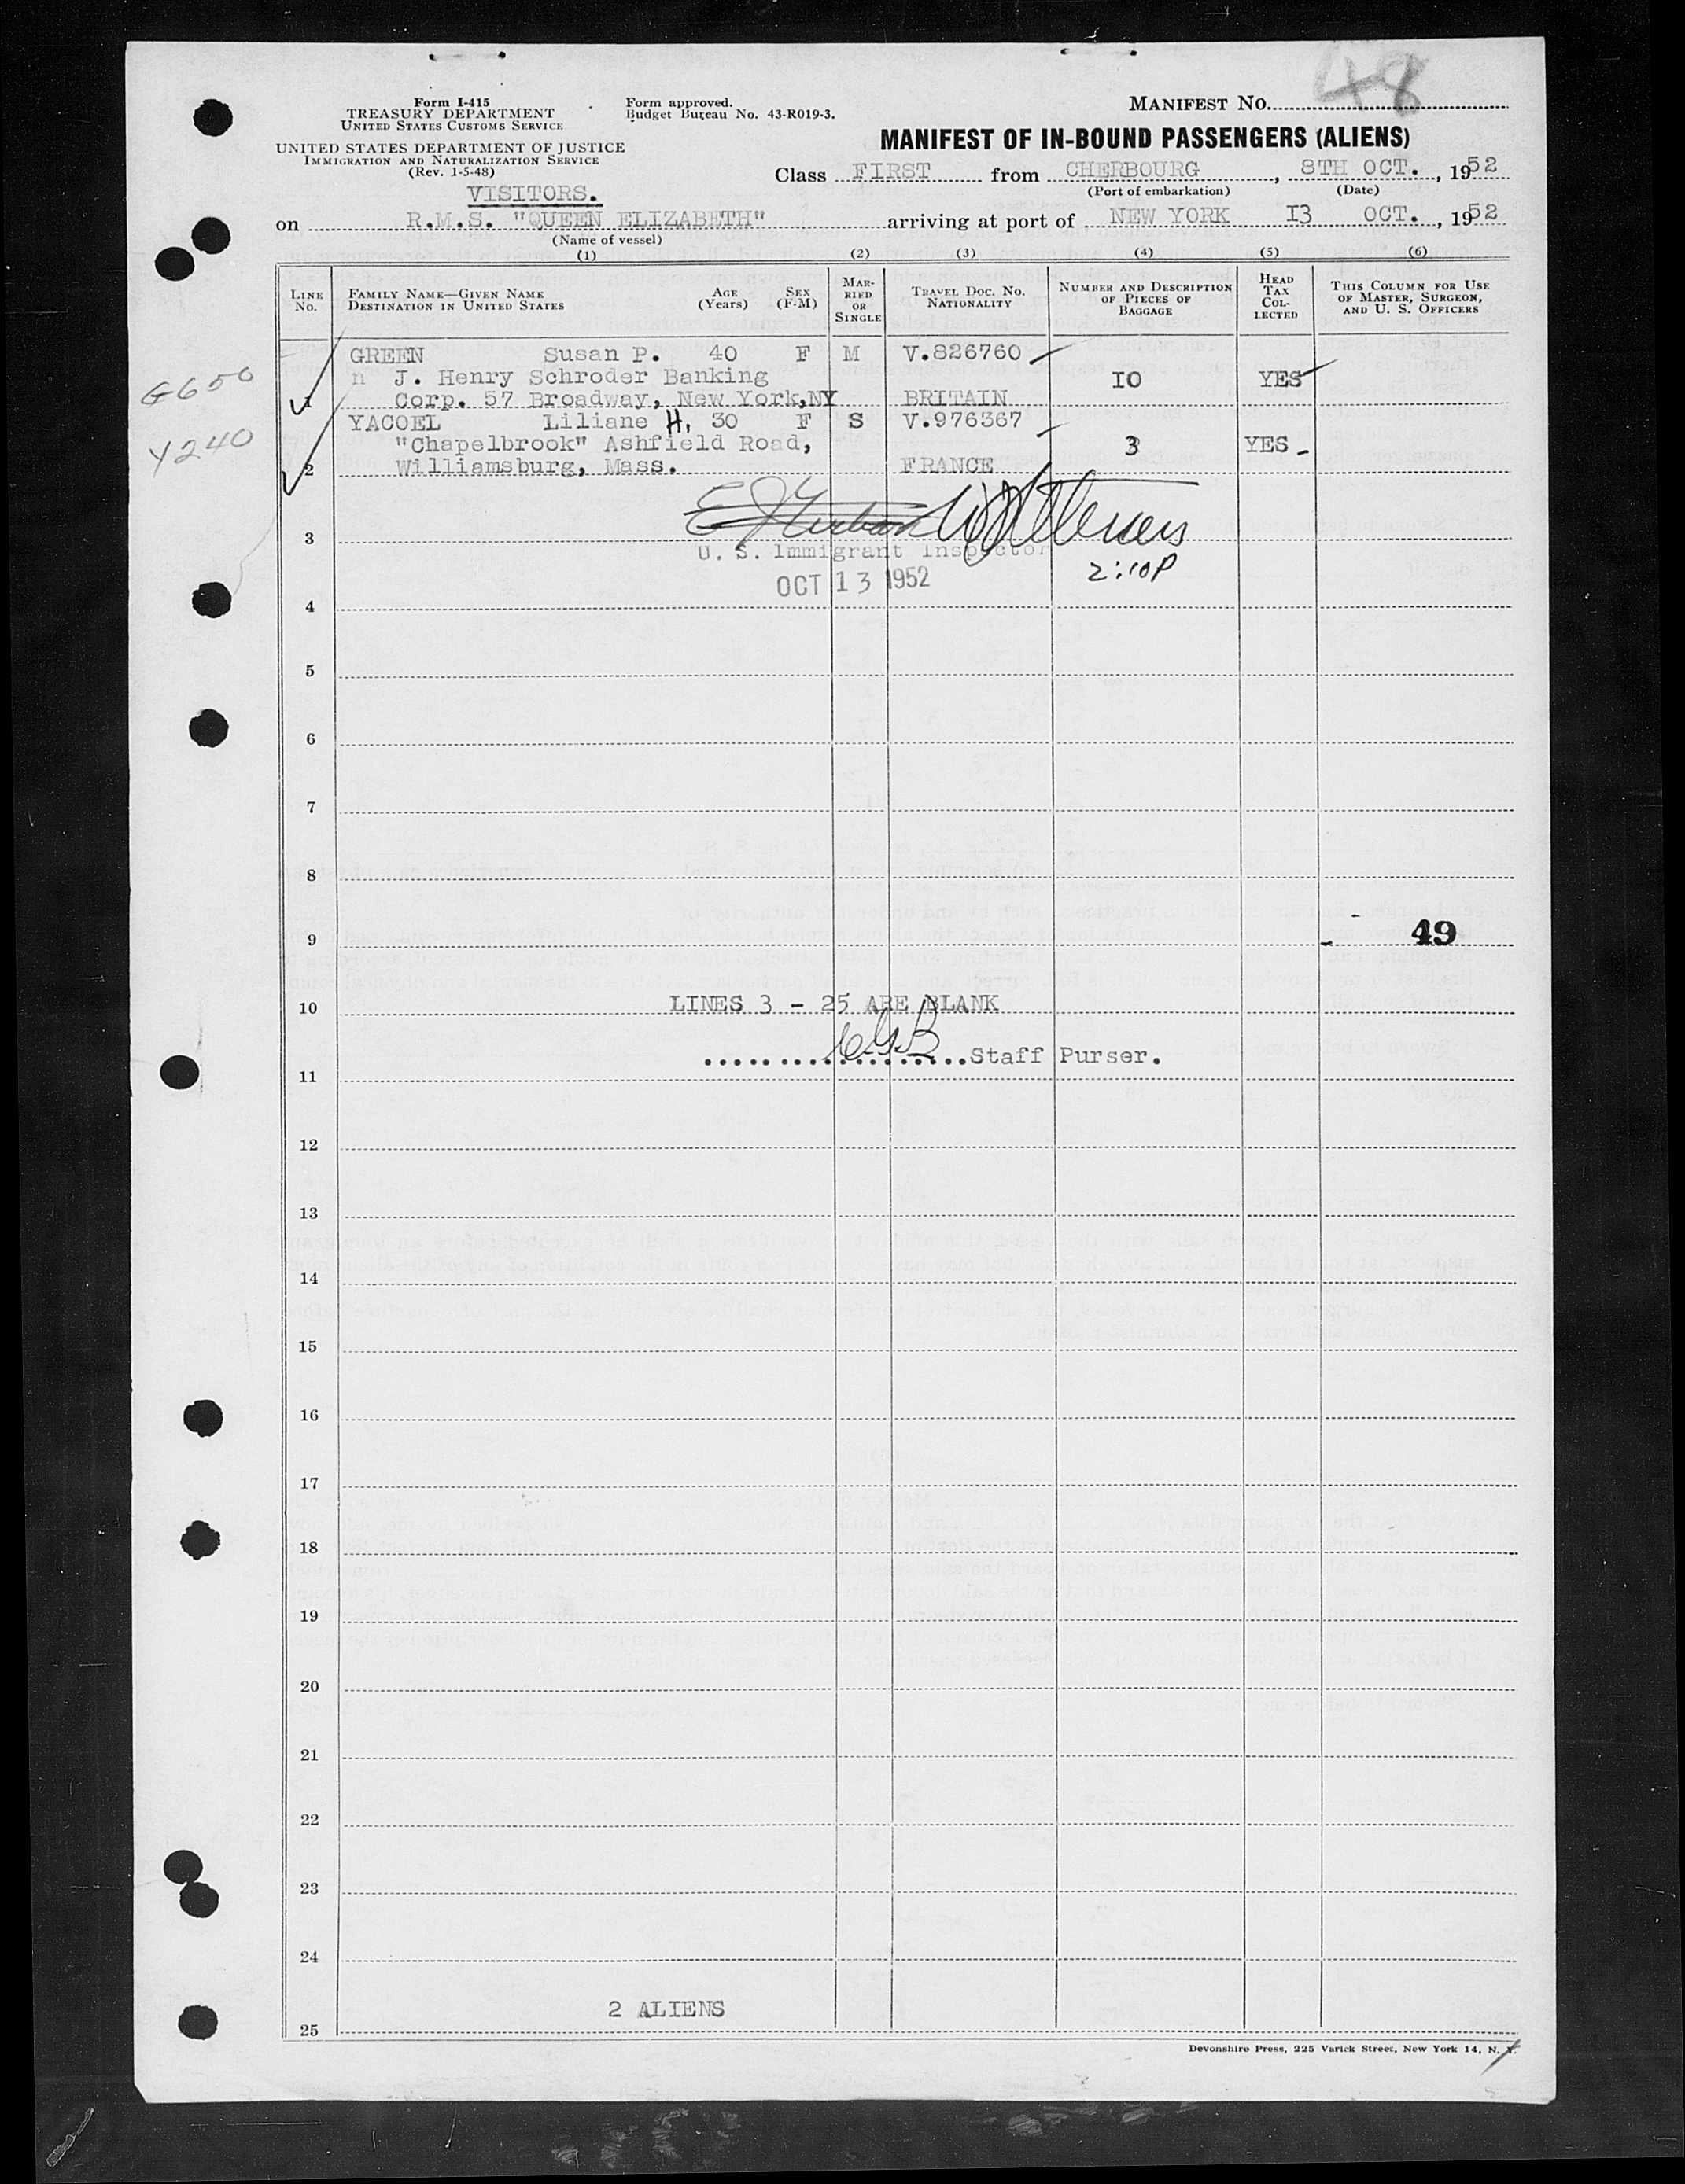 48
Form I-415
TREASURY DEPARTMENT
UNITED STATES CUSTOMS SERVICE
UNITED STATES DEPARTMENT OF JUSTICE
IMMIGRATION AND NATURALIZATION SERVICE
(Rev. 1-5-48)
Form approved.
Budget Bureau No. 43-R019-3.
MANIFEST NO.
MANIFEST OF IN-BOUND PASSENGERS (ALIENS)
Class FIRST from CHERBOURG, 8TH OCT., 1952
(Port of embarkation) (Date)
VISITORS.
on R.M.S. "QUEEN ELIZABETH" arriving at port of NEW YORK I3 OCT., 1952
(Name of vessel)
(1) (2) (3) (4) (5) (6)
LINE NO. FAMILY NAME—GIVEN NAME DESTINATION IN UNITED STATES AGE (Years) SEX (F-M) MARRIED OR SINGLE TRAVEL DOC. NO. NATIONALITY NUMBER AND DESCRIPTION OF PIECES OF BAGGAGE HEAD TAX COLLECTED THIS COLUMN FOR USE OF MASTER, SURGEON, AND U. S. OFFICERS
GREEN Susan P. 40 F M V.826760
G650 n J. Henry Schroder Banking I0 YES
1 Corp. 57 Broadway, New York,NY BRITAIN
YACOEL Liliane H, 30 F S V.976367
Y240 "Chapelbrook" Ashfield Road, 3 YES
2 Williamsburg, Mass. FRANCE
3
U. S. Immigrant Inspector
2:10P
OCT 13 1952
4
5
6
7
8
49
9
LINES 3 - 25 ARE BLANK
10
Staff Purser.
11
12
13
14
15
16
17
18
19
20
21
22
23
24
2 ALIENS
25
Devonshire Press, 225 Varick Street, New York 14, N. Y.